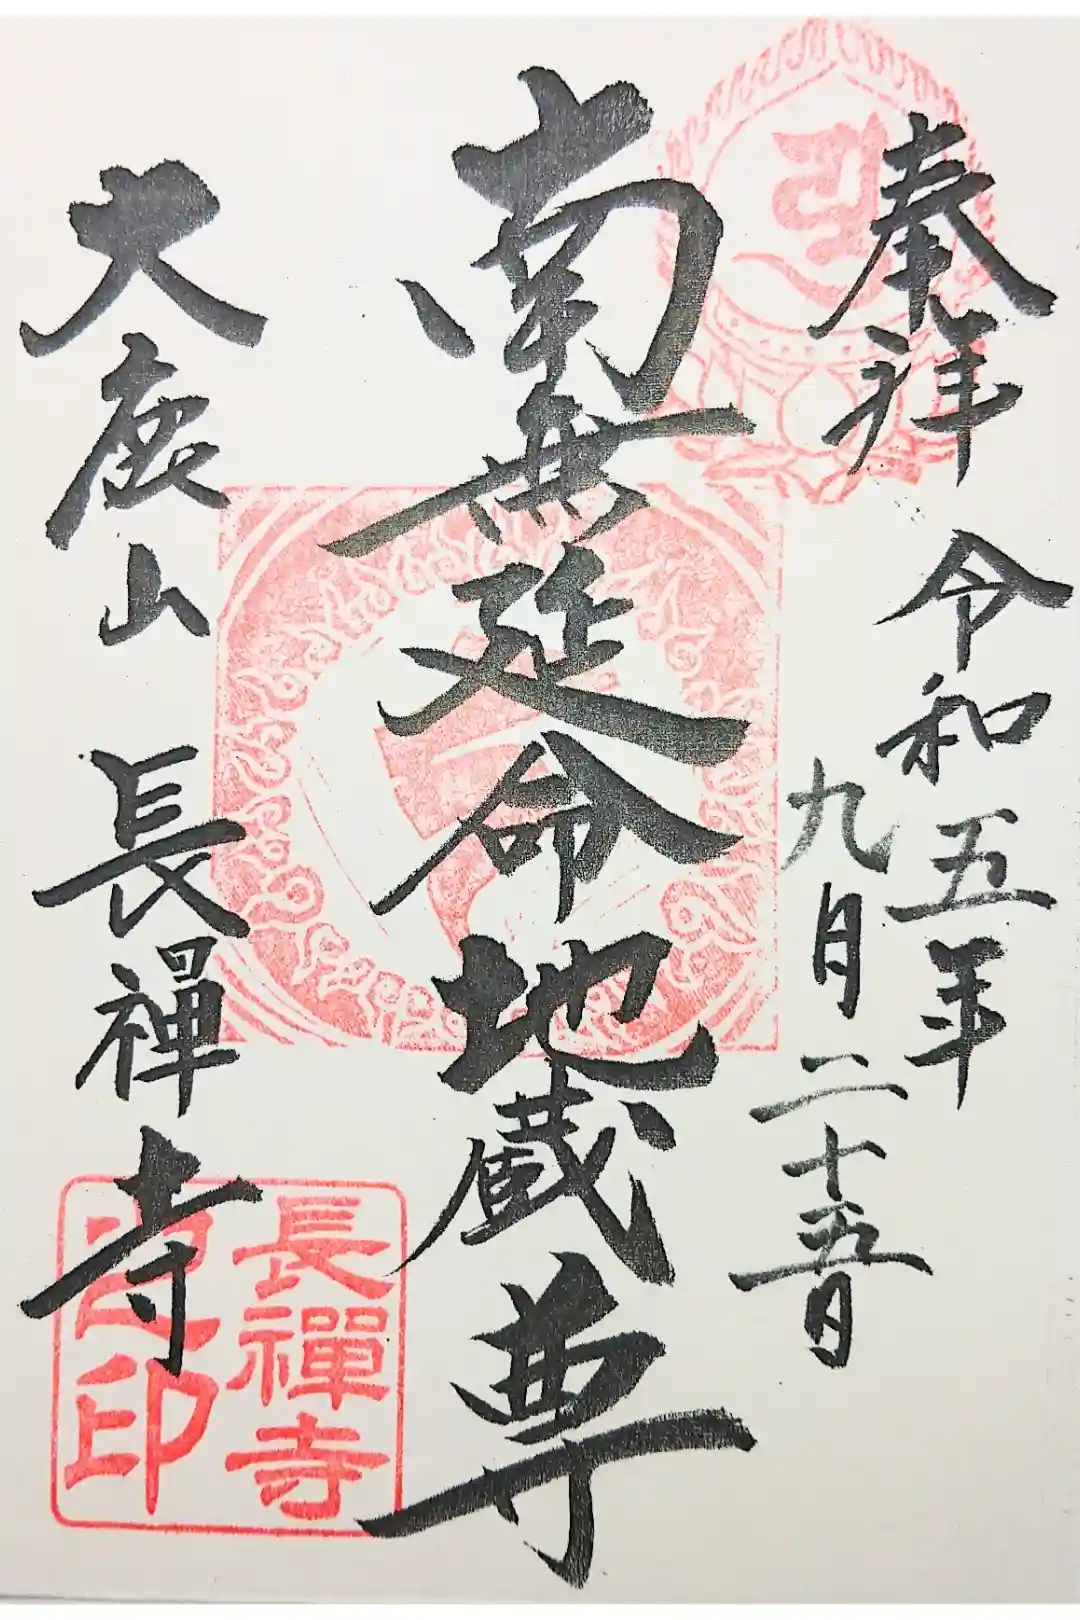 奉拝
令和五年
九月二十五日
南無延命地蔵尊
大鹿山 長禪寺
長禪寺
印